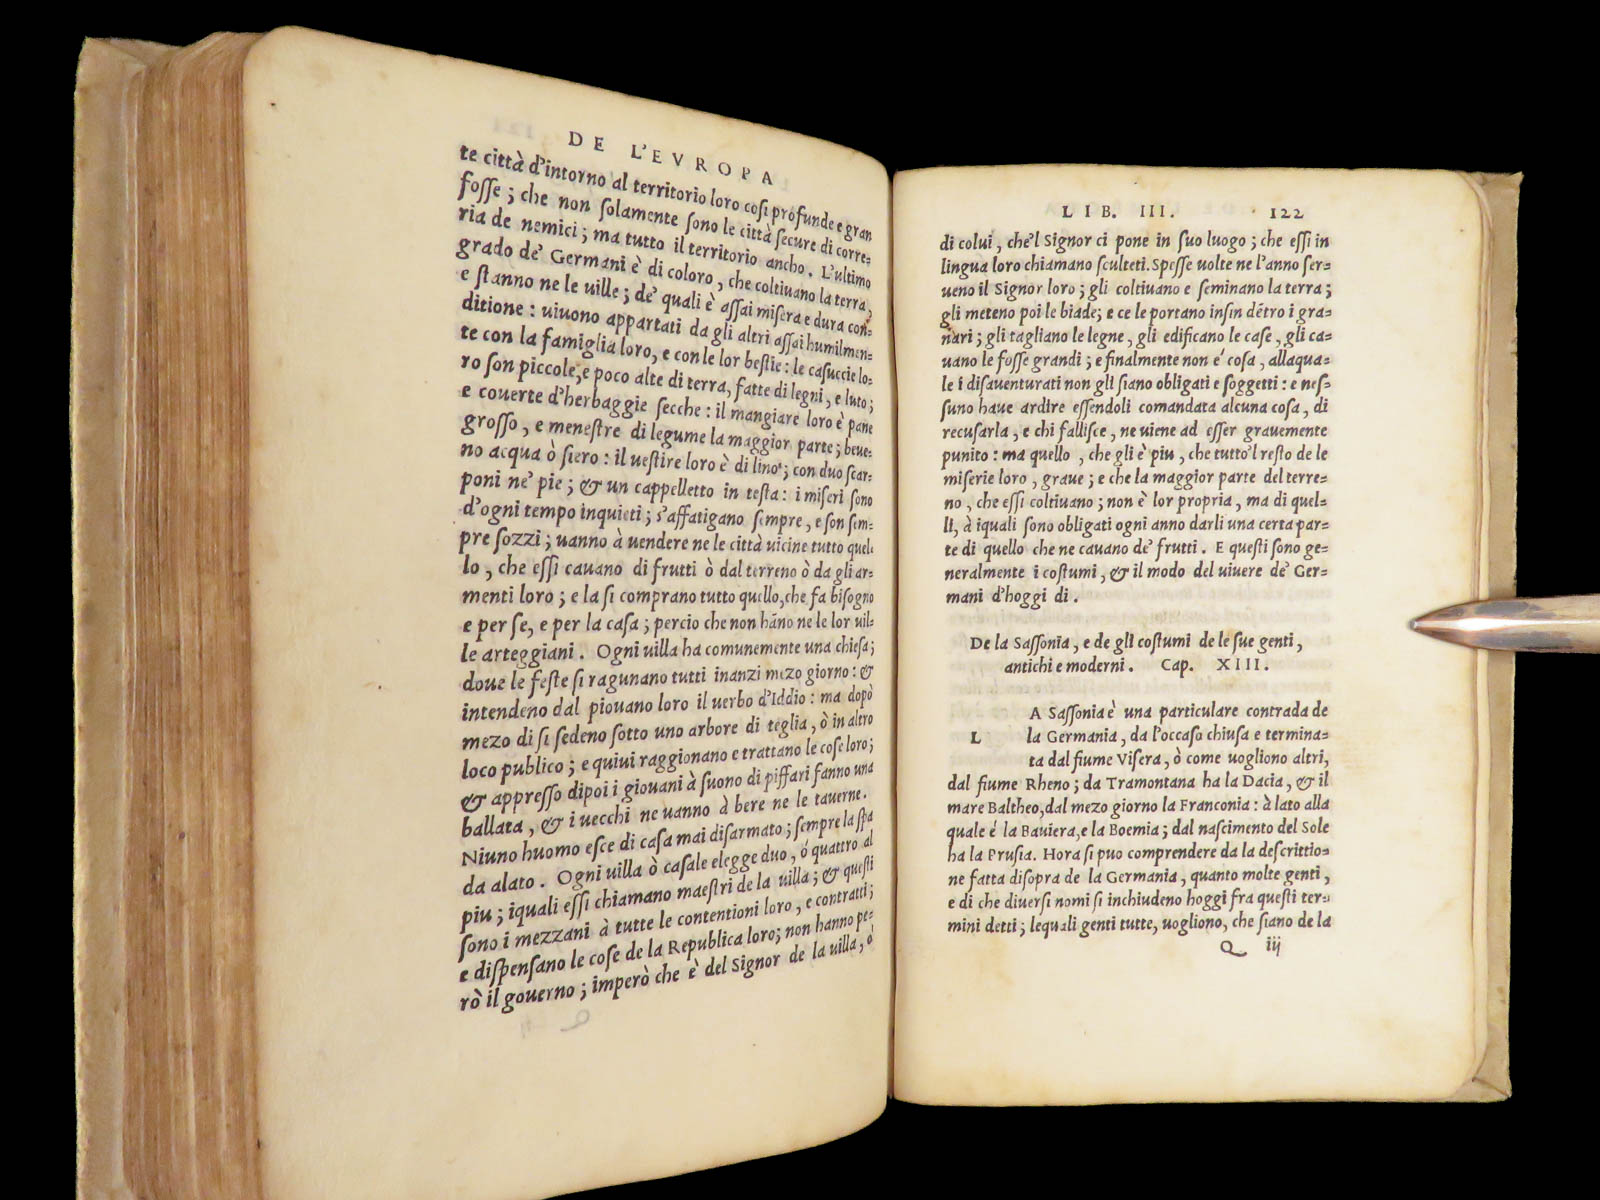 DE L'EVROPA
te città d'intorno al territorio loro cosi profunde e gran
fosse ; che non solamente sono le città secure di corre-
ria de nemici ; ma tutto il territorio ancho . L'ultimo
grado de' Germani è di coloro , che coltiuano la terra,
e stanno ne le uille ; de' quali è assai misera e dura con-
ditione : uiuono appartati da gli altri assai humilmen-
te con la famiglia loro, e con le lor bestie : le casuccie lo-
ro son piccole, e poco alte di terra, fatte di legni, e luto ;
e couerte d'herbaggie secche : il mangiare loro è pane
grosso , e menestre di legume la maggior parte ; beue-
no acqua ò siero : il uestire loro è di lino ; con duo scar-
poni ne' pie ; & un cappelletto in testa : i miseri sono
d'ogni tempo inquieti ; s'affatigano sempre, e son sem-
pre sozzi ; uanno à uendere ne le città uicine tutto quel
lo , che essi cauano di frutti ò dal terreno ò da gli ar-
menti loro ; e la si comprano tutto quello, che fa bisogno
e per se, e per la casa ; percio che non hāno ne le lor uil-
le arteggiani . Ogni uilla ha comunemente una chiesa ;
doue le feste si ragunano tutti inanzi mezo giorno : &
intendeno dal piouano loro il uerbo d'Iddio : ma dopò
mezo di si sedeno sotto uno arbore di teglia , ò in altro
loco publico ; e quiui raggionano e trattano le cose loro ;
& appresso dipoi i giouani à suono di piffari fanno una
ballata , & i uecchi ne uanno à bere ne le tauerne .
Niuno huomo esce di casa mai disarmato ; sempre la spa
da alato . Ogni uilla ò casale elegge duo , ò quattro al
piu ; iquali essi chiamano maestri de la uilla ; & questi
sono i mezzani à tutte le contentioni loro , e contratti ;
e dispensano le cose de la Republica loro; non hanno pe-
rò il gouerno ; imperò che è del Signor de la uilla , ò
LIB. III. 122
di colui , che'l Signor ci pone in suo luogo ; che essi in
lingua loro chiamano sculteti. Spesse uolte ne l'anno ser-
ueno il Signor loro ; gli coltiuano e seminano la terra ;
gli meteno poi le biade; e ce le portano insin dētro i gra-
nari ; gli tagliano le legne , gli edificano le case , gli ca-
uano le fosse grandi ; e finalmente non é cosa , allaqua-
le i disauenturati non gli siano obligati e soggetti : e nes-
suno haue ardire essendoli comandata alcuna cosa , di
recusarla , e chi fallisce , ne uiene ad esser grauemente
punito : ma quello , che gli è piu , che tutto'l resto de le
miserie loro , graue ; e che la maggior parte del terre-
no , che essi coltiuano ; non è lor propria , ma di quel-
li, à iquali sono obligati ogni anno darli una certa par-
te di quello che ne cauano de' frutti . E questi sono ge-
neralmente i costumi , & il modo del uiuere de' Ger-
mani d'hoggi di .
De la Sassonia , e de gli costumi de le sue genti ,
antichi e moderni . Cap. XIII.
LA Sassonia è una particulare contrada de
la Germania , da l'occaso chiusa e termina-
ta dal fiume Visera, ò come uogliono altri,
dal fiume Rheno ; da Tramontana ha la Dacia , & il
mare Baltheo, dal mezo giorno la Franconia : à lato alla
quale é la Bauiera, e la Boemia ; dal nascimento del Sole
ha la Prusia . Hora si puo comprendere da la descrittio-
ne fatta disopra de la Germania , quanto molte genti ,
e di che diuersi nomi si inchiudeno hoggi fra questi ter-
mini detti ; lequali genti tutte, uogliono, che siano de la
Q iij